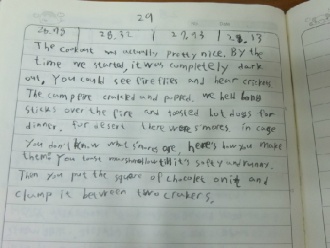 29
28,32 27,33
The cookout was actually pretty nice. By the
time we started, it was completely dark
out. You could see fireflies and hear crickets
The campfire crackled and popped. we held long
sticks over the fire and roasted hot dogs for
dinner. for desert there were s'mores. in case
you don't know what s'mores are, here's how you make
them: You toast marshmallow till it's softy and runny.
Then you put the square of chocolet on it and
clamp it between two crakers.